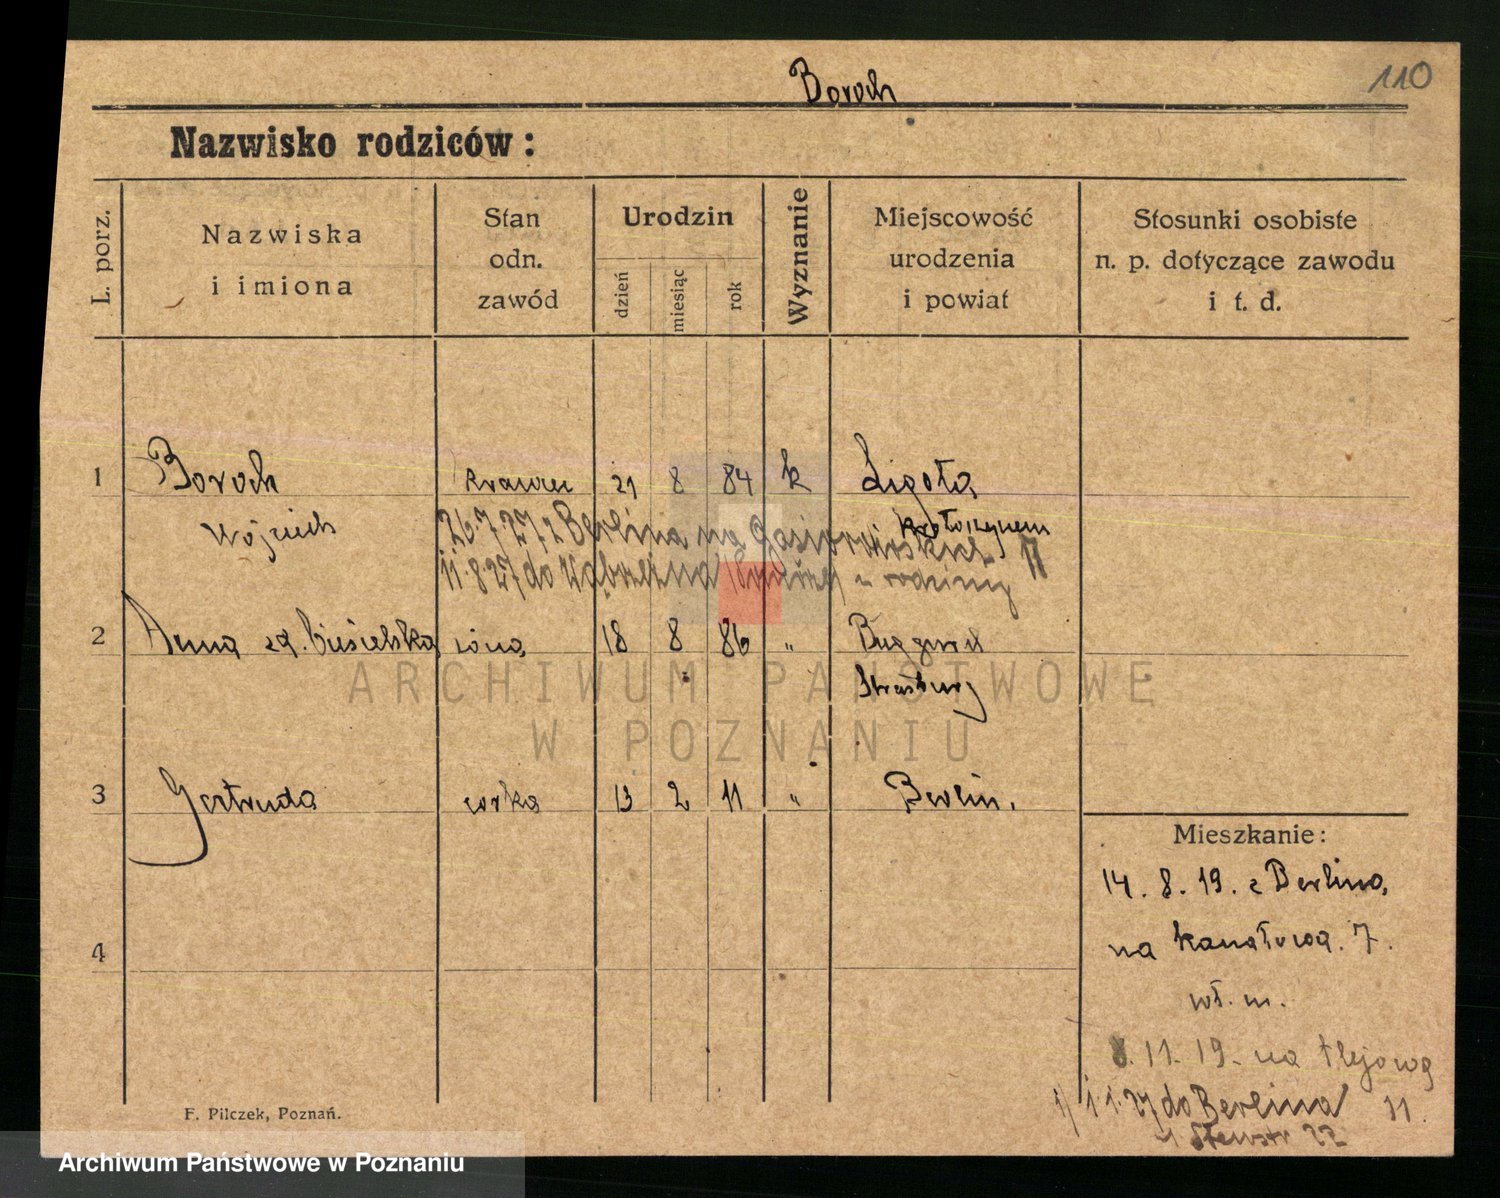 110
Boroch
Nazwisko rodziców:
L. porz.
Nazwiska
i imiona
Stan
odn.
zawód
Urodzin
dzień
miesiąc
rok
Wyznanie
Miejscowość
urodzenia
i powiat
Stosunki osobiste
n. p. dotyczące zawodu
i t. d.
1 Boroch krawiec 21 8 84 k Ligota
Wojciech Krotoszynem
26.7.27 z Berlina na Gąsiorowskich 11
11.8.27 do z rodziny
2 Anna żona 18 8 86 "
Strasburg
3 Gertruda córka 13 2 11 " Berlin.
4
Mieszkanie:
14.8.19. z Berlina,
na Kanałowa. 7.
wł. m.
8.11.19. na
1.1.27 do Berlina 11.
22
F. Pilczek, Poznań.
ARCHIWUM PAŃSTWOWE
W POZNANIU
Archiwum Państwowe w Poznaniu